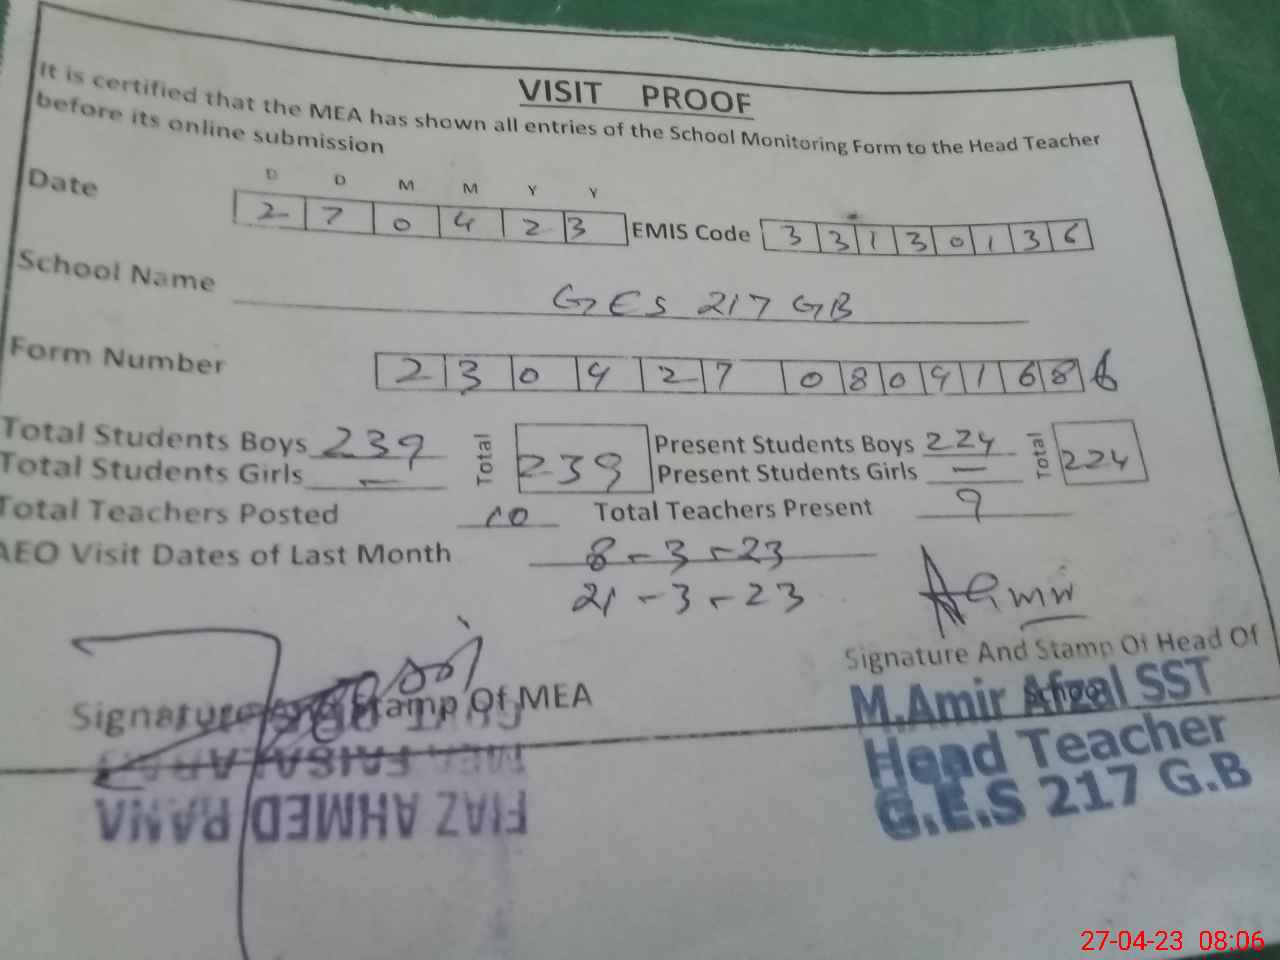 VISIT PROOF
It is certified that the MEA has shown all entries of the School Monitoring Form to the Head Teacher
before its online submission
D D M M Y Y
Date 2 7 0 4 2 3 EMIS Code 3 3 1 3 0 1 3 6
School Name GES 217 GB
Form Number 2 3 0 4 2 7 0 8 0 9 1 6 8 6
Total Students Boys 239 Total 239 Present Students Boys 224 Total 224
Total Students Girls — Present Students Girls —
Total Teachers Posted 10 Total Teachers Present 9
AEO Visit Dates of Last Month 8-3-23
21-3-23
Signature And Stamp Of Head Of
School
Signature And Stamp Of MEA
M.Amir Afzal SST
Head Teacher
G.E.S 217 G.B
FIAZ AHMED RANA
27-04-23 08:06